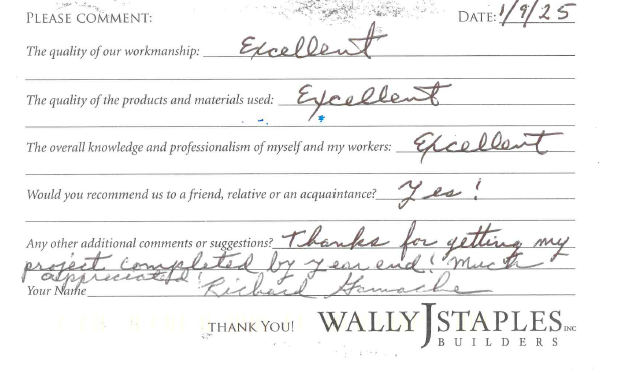 PLEASE COMMENT: DATE: 1/9/25
The quality of our workmanship: Excellent
The quality of the products and materials used: Excellent
The overall knowledge and professionalism of myself and my workers: Excellent
Would you recommend us to a friend, relative or an acquaintance? Yes!
Any other additional comments or suggestions? Thanks for getting my
project completed by year end! Much
appreciated!
Your Name Richard Gamache
THANK YOU! WALLY J STAPLES INC
BUILDERS